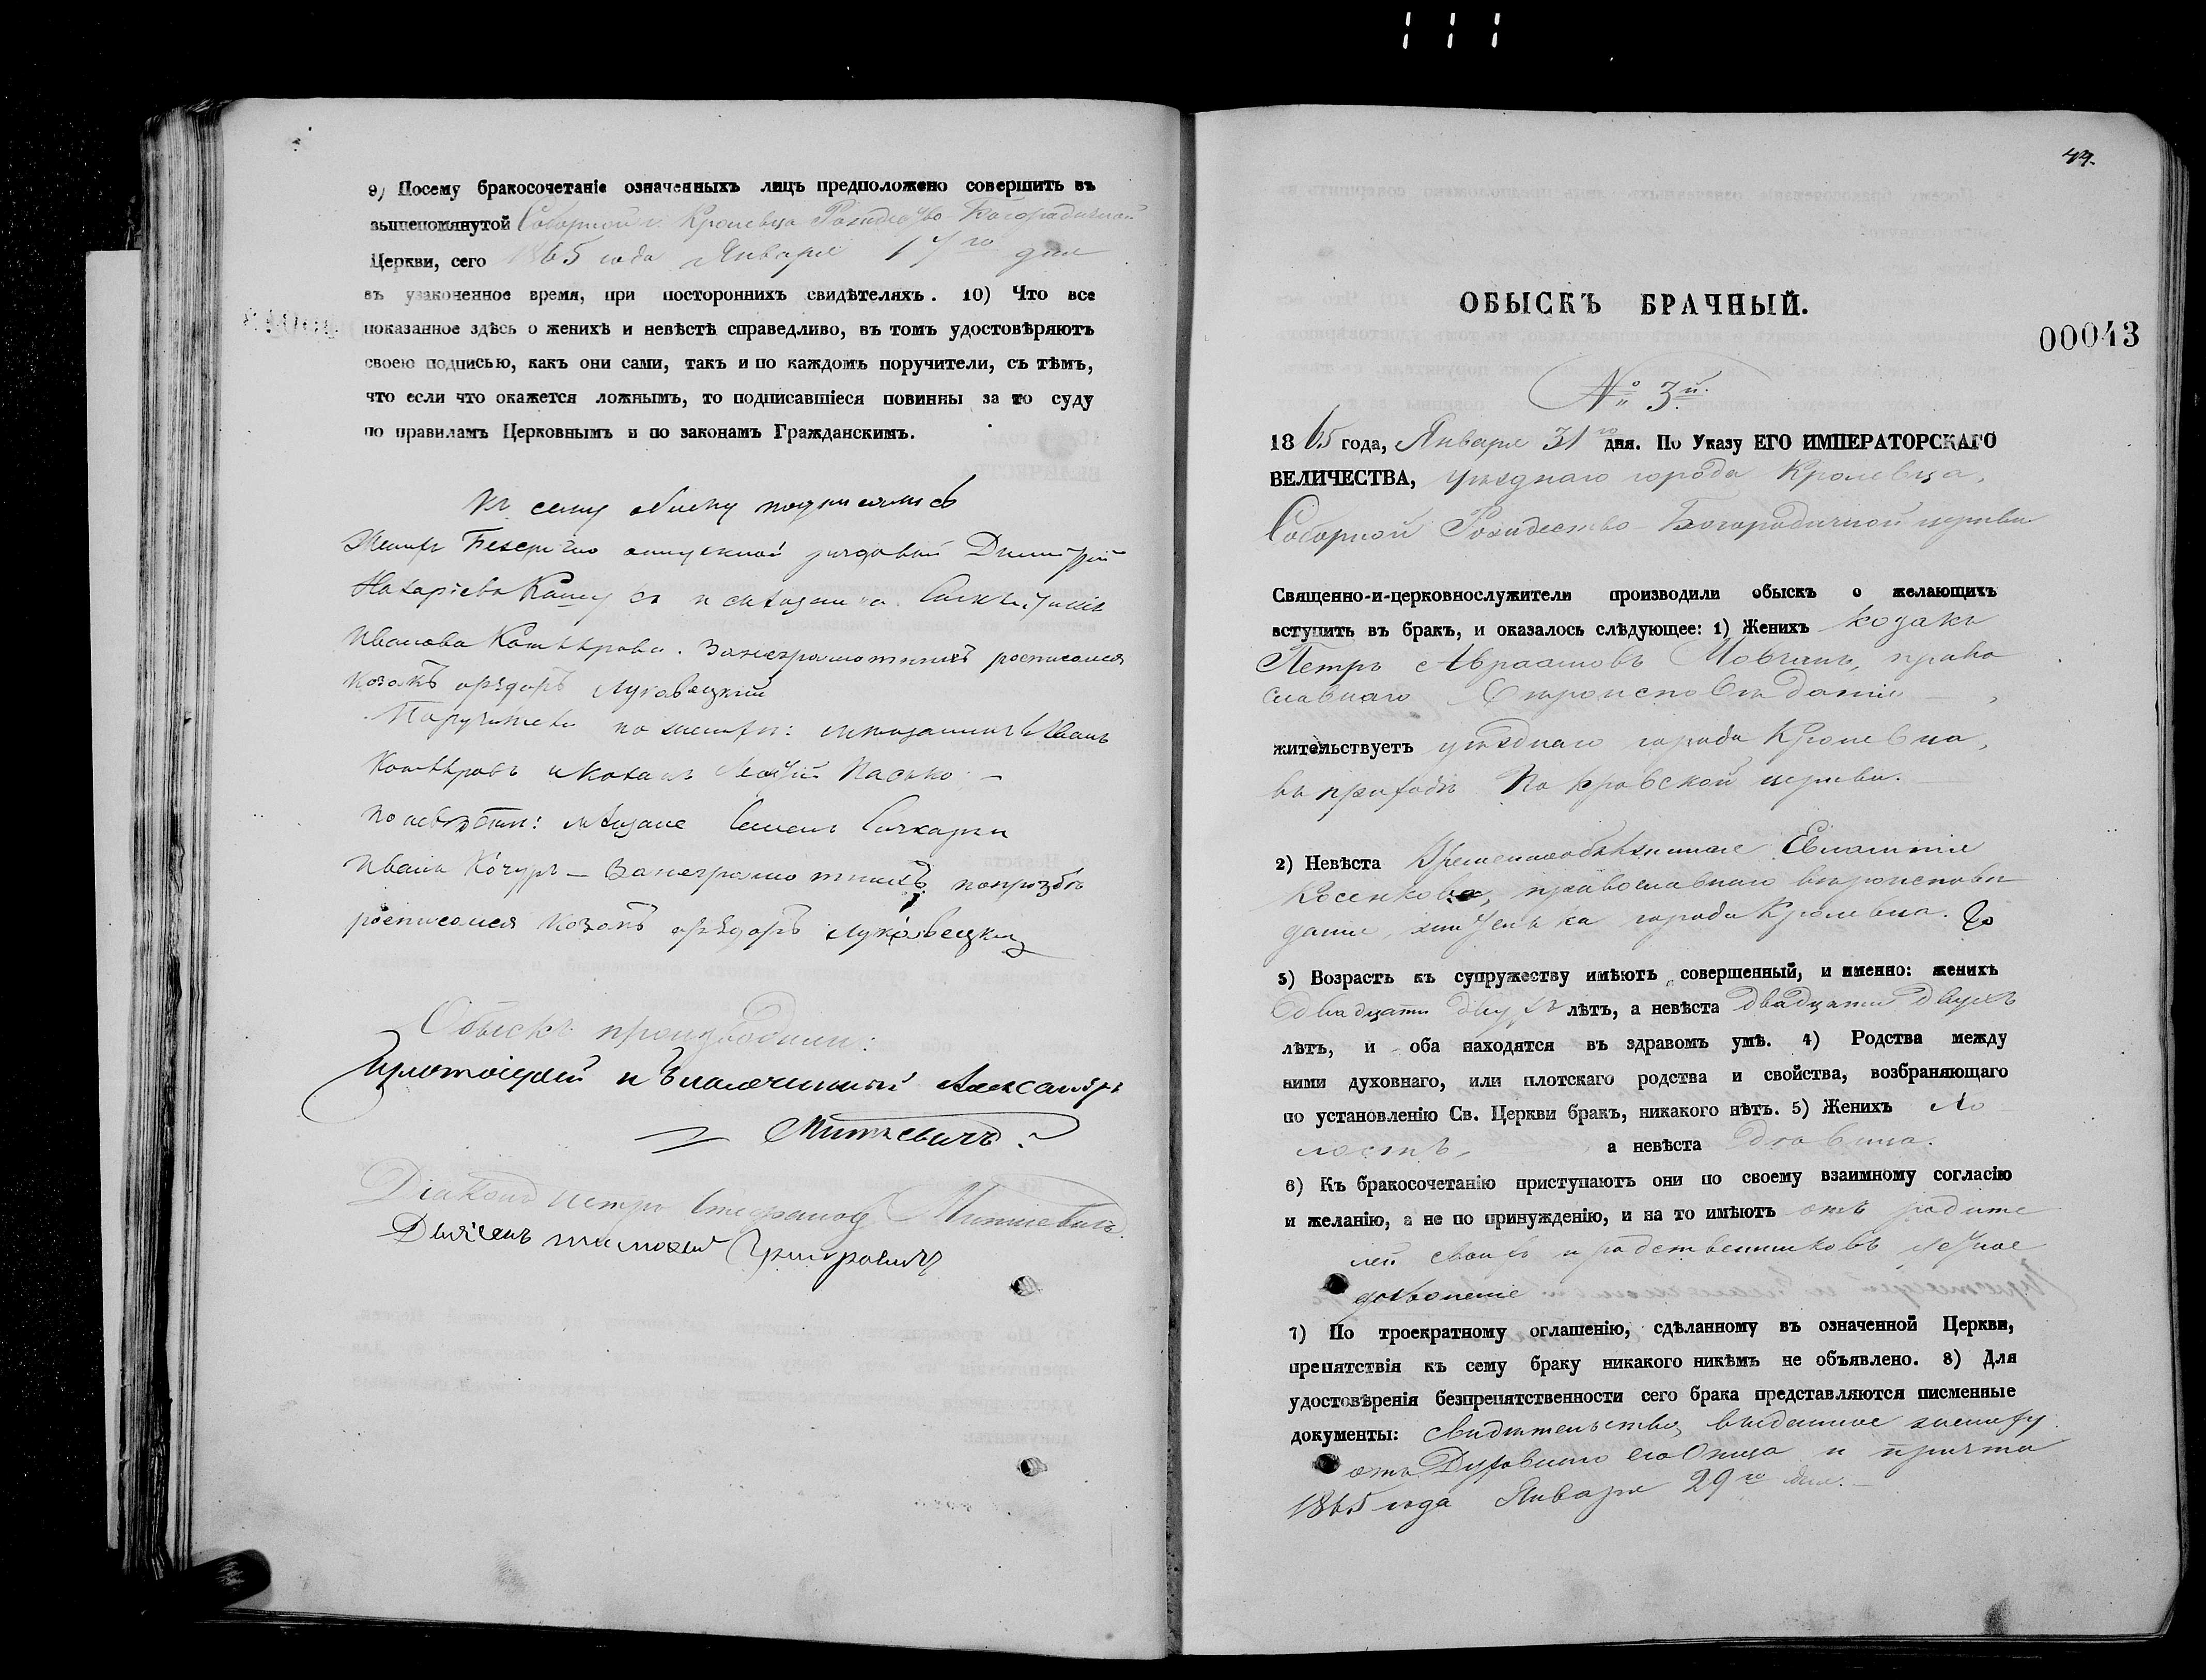 9) Посему бракосочетаніе означенныхъ лицъ предположено совершить въ
вышепомянутой Соборной г. Кролевца Рождество-Богородичной
Церкви, сего 1865 года Января 17го дня
въ узаконенное время, при постороннихъ свидѣтеляхъ. 10) Что все
показанное здѣсь о женихѣ и невѣстѣ справедливо, въ томъ удостовѣряютъ
своею подписью, какъ они сами, такъ и по каждомъ поручители, съ тѣмъ,
что если что окажется ложнымъ, то подписавшіеся повинны за то суду
по правиламъ Церковнымъ и по законамъ Гражданскимъ.
Къ сему обыску подписались
Женихъ отпускной рядовой Димитрій
Иванова. За неграмотныхъ росписался
козакъ Луговецкій
Поручители по женихѣ: мѣщанинъ Иванъ
и козакъ Пасько
по невѣстѣ: мѣщане Семенъ
Иванъ Кочура — За неграмотныхъ по прозбѣ
росписался козакъ Луковецкій
Обыскъ производили:
Протоіерей и Благочинный Александръ
Миткевичъ
Діаконъ Петръ Стефановъ Миткевичъ.
Дьячекъ Тимофей Григоровичъ
44.
ОБЫСКЪ БРАЧНЫЙ.
00043
№ 3й.
1865 года, Января 31го дня. По Указу ЕГО ИМПЕРАТОРСКАГО
ВЕЛИЧЕСТВА, уѣзднаго города Кролевца,
Соборной Рождество-Богородичной церкви
Священно-и-церковнослужители производили обыскъ о желающихъ
вступить въ бракъ, и оказалось слѣдующее: 1) Женихъ козакъ
Петръ Авраамовъ Мовчанъ, право
славнаго вѣроисповѣданія,
жительствуетъ уѣзднаго города Кролевца,
въ приходѣ Покровской церкви.
2) Невѣста Временнообязанная
Косенкова, православнаго вѣроисповѣ
данія, жителька города Кролевца.
3) Возрастъ къ супружеству имѣютъ совершенный, и именно: женихъ
двадцати двухъ лѣтъ, а невѣста двадцати двухъ
лѣтъ, и оба находятся въ здравомъ умѣ. 4) Родства между
ними духовнаго, или плотскаго родства и свойства, возбраняющаго
по установленію Св. Церкви бракъ, никакого нѣтъ. 5) Женихъ хо
лостъ, а невѣста дѣвица.
6) Къ бракосочетанію приступаютъ они по своему взаимному согласію
и желанію, а не по принужденію, и на то имѣютъ отъ родите
лей своихъ и родственниковъ
дозволеніе
7) По троекратному оглашенію, сдѣланному въ означенной Церкви,
препятствія къ сему браку никакого никѣмъ не объявлено. 8) Для
удостовѣренія безпрепятственности сего брака представляются писменные
документы: свидѣтельство, выданное жениху
отъ Духовнаго его Отца и причта
1865 года Января 29го дня.